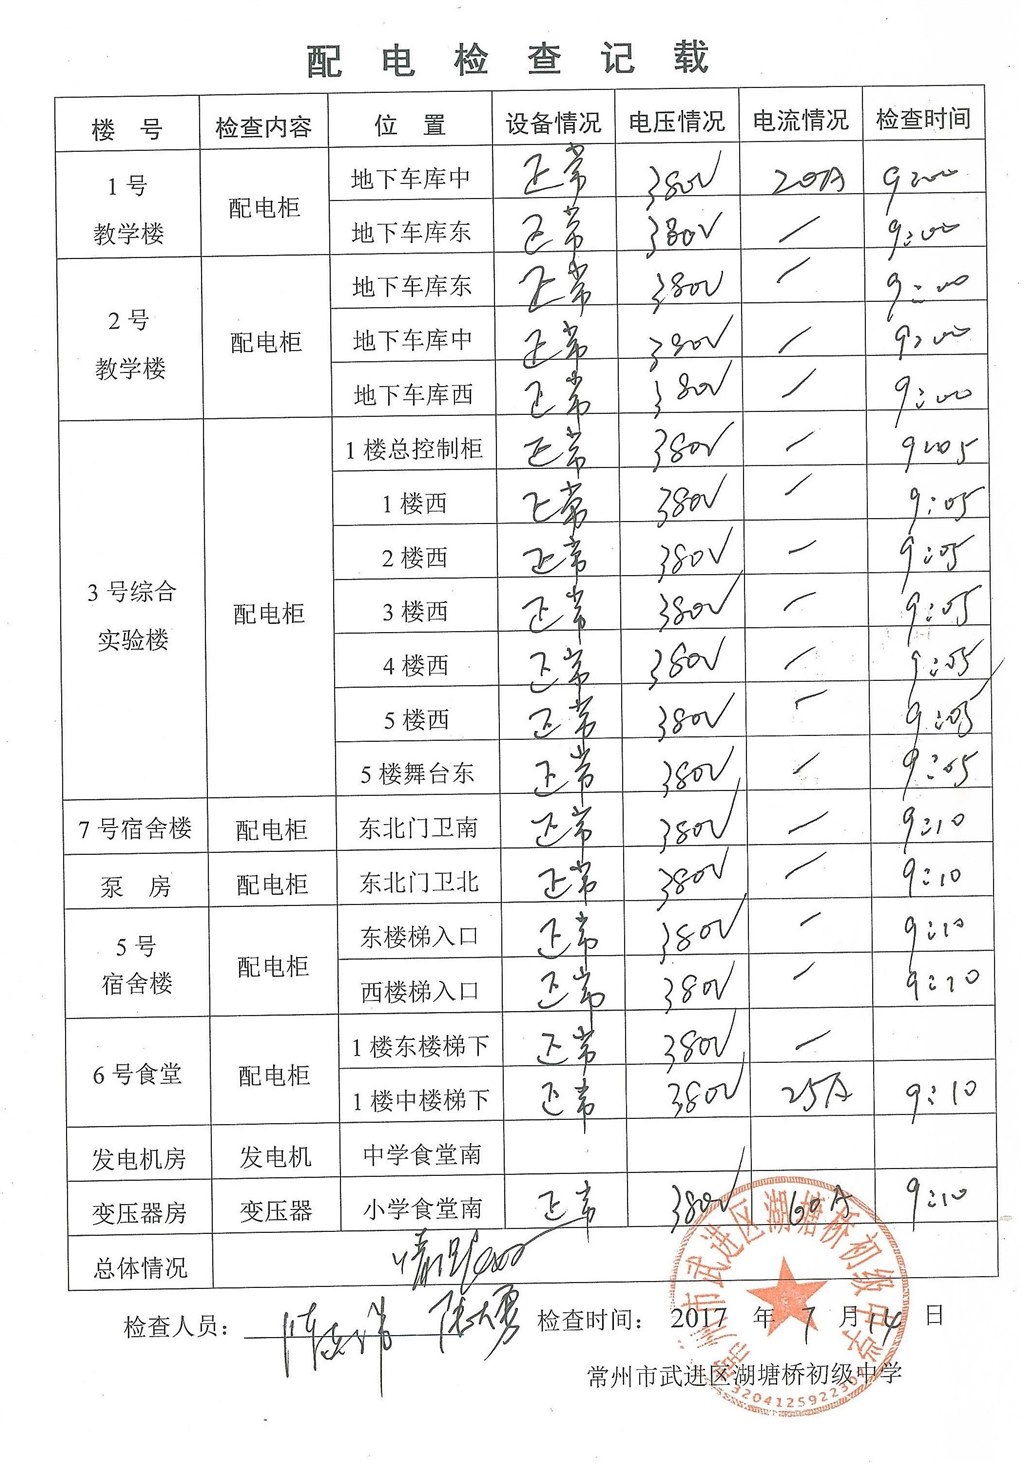 配电检查记载
楼 号 检查内容 位 置 设备情况 电压情况 电流情况 检查时间
1号 教学楼 配电柜 地下车库中 正常 380V 20A 9:00
地下车库东 正常 380V / 9:00
2号 教学楼 配电柜 地下车库东 正常 380V / 9:00
地下车库中 正常 380V / 9:00
地下车库西 正常 380V / 9:00
3号综合 实验楼 配电柜 1楼总控制柜 正常 380V / 9:05
1楼西 正常 380V / 9:05
2楼西 正常 380V / 9:05
3楼西 正常 380V / 9:05
4楼西 正常 380V / 9:05
5楼西 正常 380V / 9:05
5楼舞台东 正常 380V / 9:05
7号宿舍楼 配电柜 东北门卫南 正常 380V / 9:10
泵 房 配电柜 东北门卫北 正常 380V / 9:10
5号 宿舍楼 配电柜 东楼梯入口 正常 380V / 9:10
西楼梯入口 正常 380V / 9:10
6号食堂 配电柜 1楼东楼梯下 正常 380V /
1楼中楼梯下 正常 380V 25A 9:10
发电机房 发电机 中学食堂南
变压器房 变压器 小学食堂南 正常 380V 160A 9:10
总体情况
检查人员： 检查时间： 2017 年 7 月 14 日
常州市武进区湖塘桥初级中学
常州市武进区湖塘桥初级中学